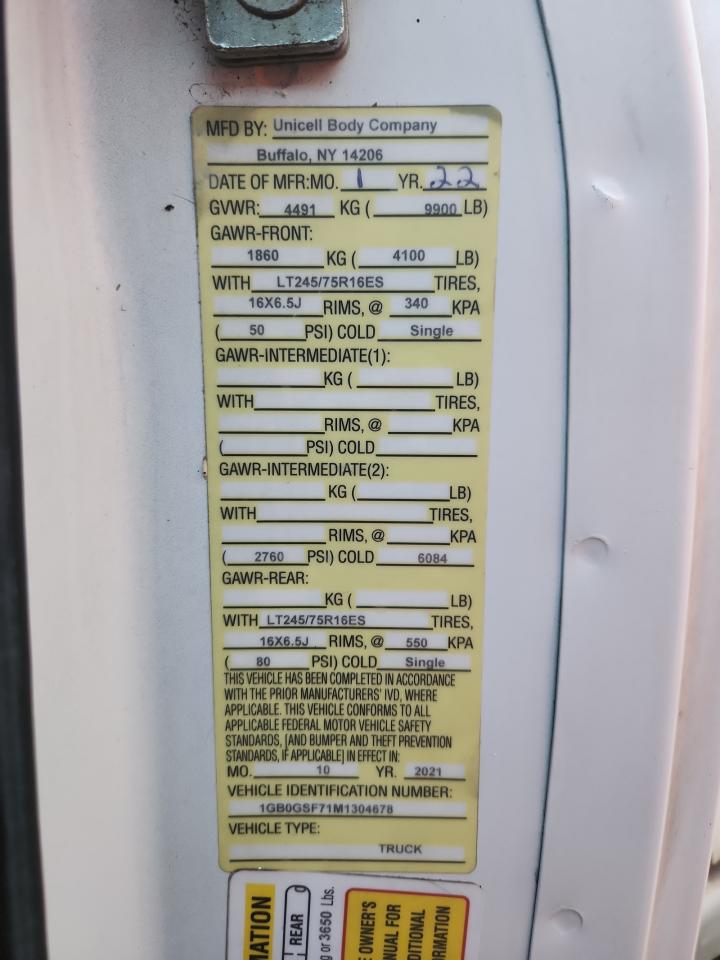 MFD BY: Unicell Body Company
Buffalo, NY 14206
DATE OF MFR:MO. 1 YR. 22
GVWR: 4491 KG ( 9900 LB)
GAWR-FRONT:
1860 KG ( 4100 LB)
WITH LT245/75R16ES TIRES,
16X6.5J RIMS, @ 340 KPA
( 50 PSI) COLD Single
GAWR-INTERMEDIATE(1):
KG ( LB)
WITH TIRES,
RIMS, @ KPA
( PSI) COLD
GAWR-INTERMEDIATE(2):
KG ( LB)
WITH TIRES,
RIMS, @ KPA
( 2760 PSI) COLD 6084
GAWR-REAR:
KG ( LB)
WITH LT245/75R16ES TIRES,
16X6.5J RIMS, @ 550 KPA
( 80 PSI) COLD Single
THIS VEHICLE HAS BEEN COMPLETED IN ACCORDANCE
WITH THE PRIOR MANUFACTURERS' IVD, WHERE
APPLICABLE. THIS VEHICLE CONFORMS TO ALL
APPLICABLE FEDERAL MOTOR VEHICLE SAFETY
STANDARDS, [AND BUMPER AND THEFT PREVENTION
STANDARDS, IF APPLICABLE] IN EFFECT IN:
MO. 10 YR. 2021
VEHICLE IDENTIFICATION NUMBER:
1GB0GSF71M1304678
VEHICLE TYPE:
TRUCK
REAR
or 3650 Lbs.
OWNER'S
FOR